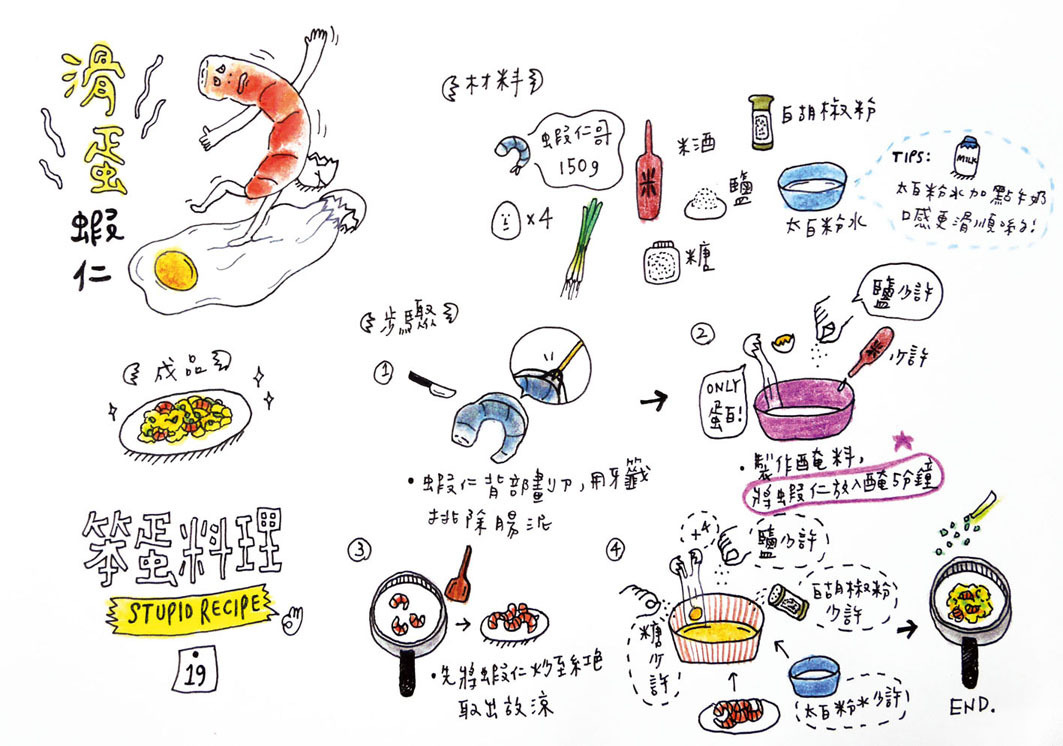 滑蛋
蝦仁
材料
蝦仁哥
150g
米
米酒
白胡椒粉
鹽
×4
糖
太白粉水
TIPS:
MILK
太白粉水加點牛奶
口感更滑順喲!
成品
步驟
①
・蝦仁背部劃刀,用牙籤
挑除腸泥
②
ONLY
蛋白!
鹽少許
米
少許
・製作醃料,
將蝦仁放入醃5分鐘
③
・先將蝦仁炒至紅艷
取出放涼
④
×4
鹽少許
糖少許
白胡椒粉
少許
太白粉水少許
END.
笨蛋料理
STUPID RECIPE
19